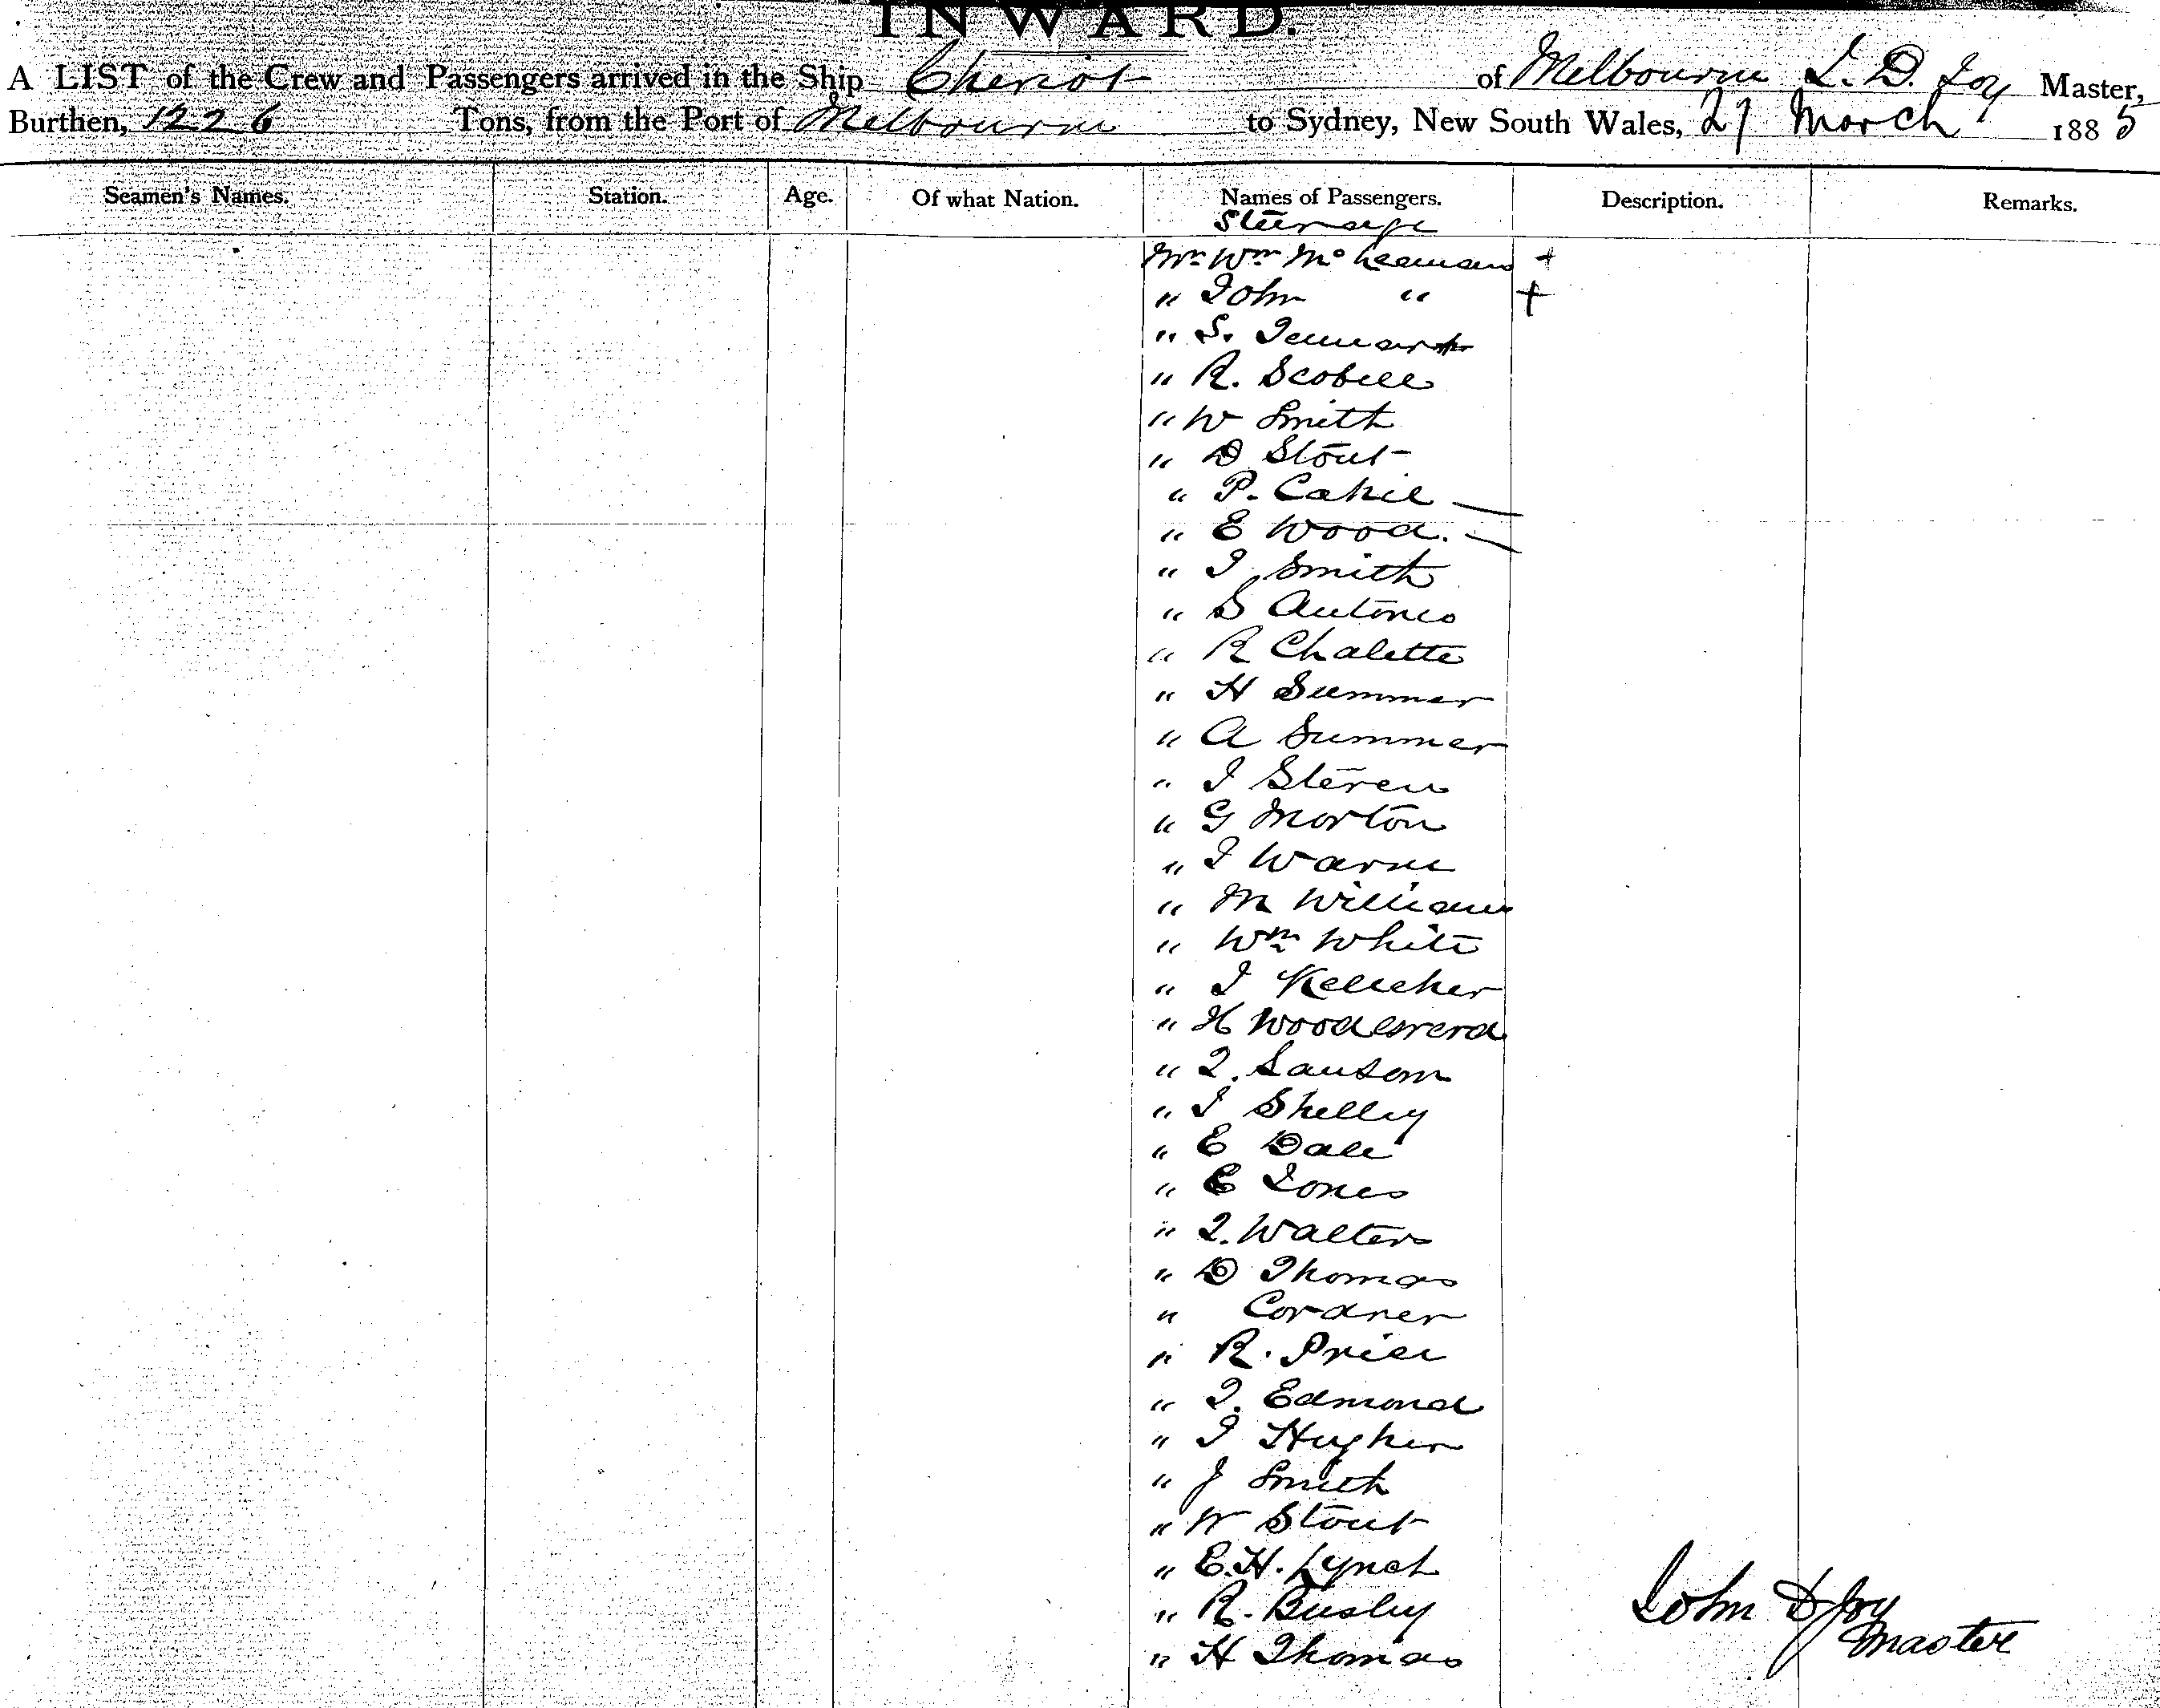 INWARD.
A LIST of the Crew and Passengers arrived in the Ship Cheviot of Melbourne J. D. Joy Master,
Burthen, 1226 Tons, from the Port of Melbourne to Sydney, New South Wales, 27 March 1885
Seamen's Names. Station. Age. Of what Nation. Names of Passengers. Description. Remarks.
Steerage
Mr Wm +
" John " +
" S.
" R. Scobell
" W Smith
" D Stout
" P. Cahill
" E Wood.
" J. Smith
" S Antonio
" R Chalette
" H Summer
" A Summer
" J Steven
" G Morton
" J Warne
" M Williams
" Wm White
" J Kelleher
" H Woodward
" J. Sansom
" J Shelley
" E Dale
" E Jones
" J. Walters
" D Thomas
" Cordner
" R. Price
" J. Edmond
" J Hughes
" J Smith
" W Stout
" E.H. Lynch
" R. Busby
" H Thomas
John D Joy
Master